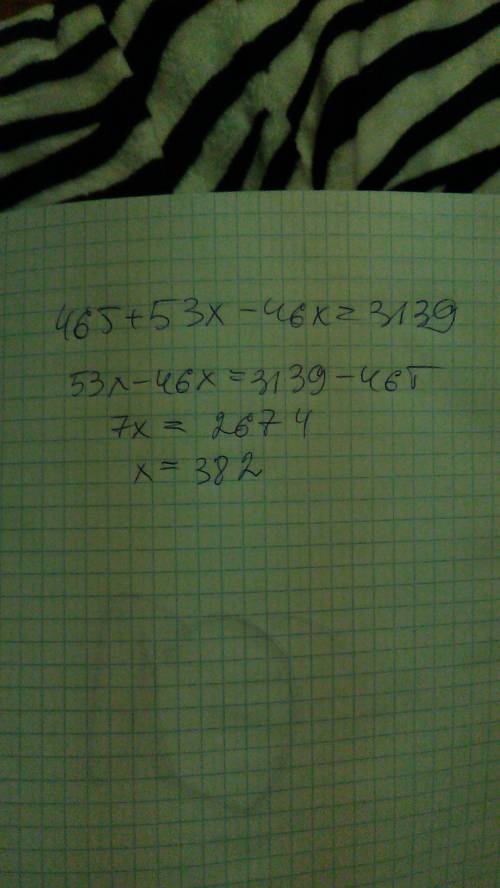 465+53x-46x=3139
53x-46x=3139-465
7x= 2674
x=382